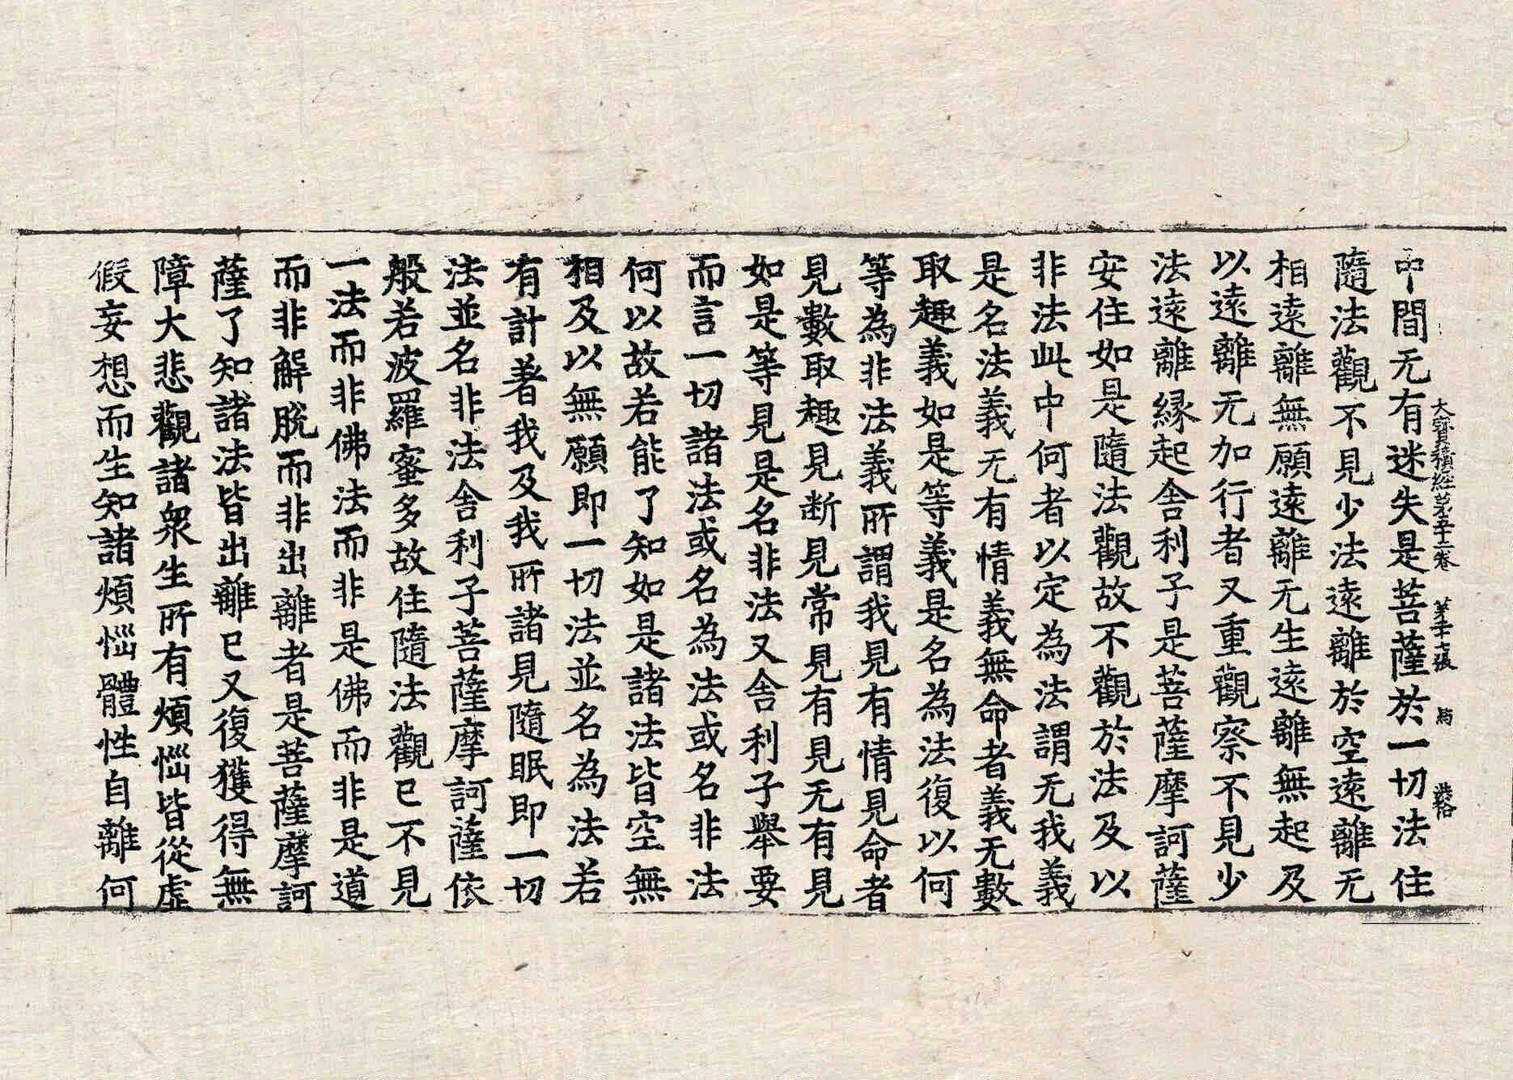 大寳積經苐五十三卷　苐十七張　鳥
中間无有迷失是菩薩於一切法住
隨法觀不見少法遠離於空遠離无
相遠離無願遠離无生遠離無起及
以遠離无加行者又重觀察不見少
法遠離縁起舎利子是菩薩摩訶薩
安住如是隨法觀故不觀於法及以
非法此中何者以定為法謂无我義
是名法義无有情義無命者義无數
取趣義如是等義是名為法復以何
等為非法義所謂我見有情見命者
見數取趣見断見常見有見无有見
如是等見是名非法又舎利子舉要
而言一切諸法或名為法或名非法
何以故若能了知如是諸法皆空無
相及以無願即一切法並名為法若
有計著我及我所諸見隨眠即一切
法並名非法舎利子菩薩摩訶薩依
般若波羅蜜多故住隨法觀已不見
一法而非佛法而非是佛而非是道
而非解脫而非出離者是菩薩摩訶
薩了知諸法皆出離已又復獲得無
障大悲觀諸衆生所有煩惱皆從虚
假妄想而生知諸煩惱體性自離何